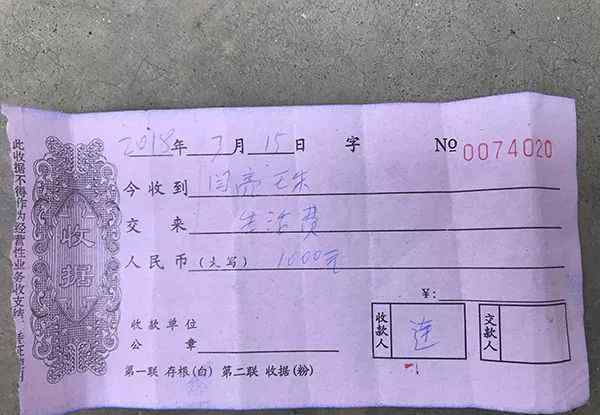 2018年 3月 15日 字 № 0074020
今收到 闫亮
交来 生活费
人民币(大写) 1000元
¥:
收款单位
公章
收款人 连 交款人
第一联 存根(白) 第二联 收据(粉)
收据
此收据不得作为经营性业务收支结